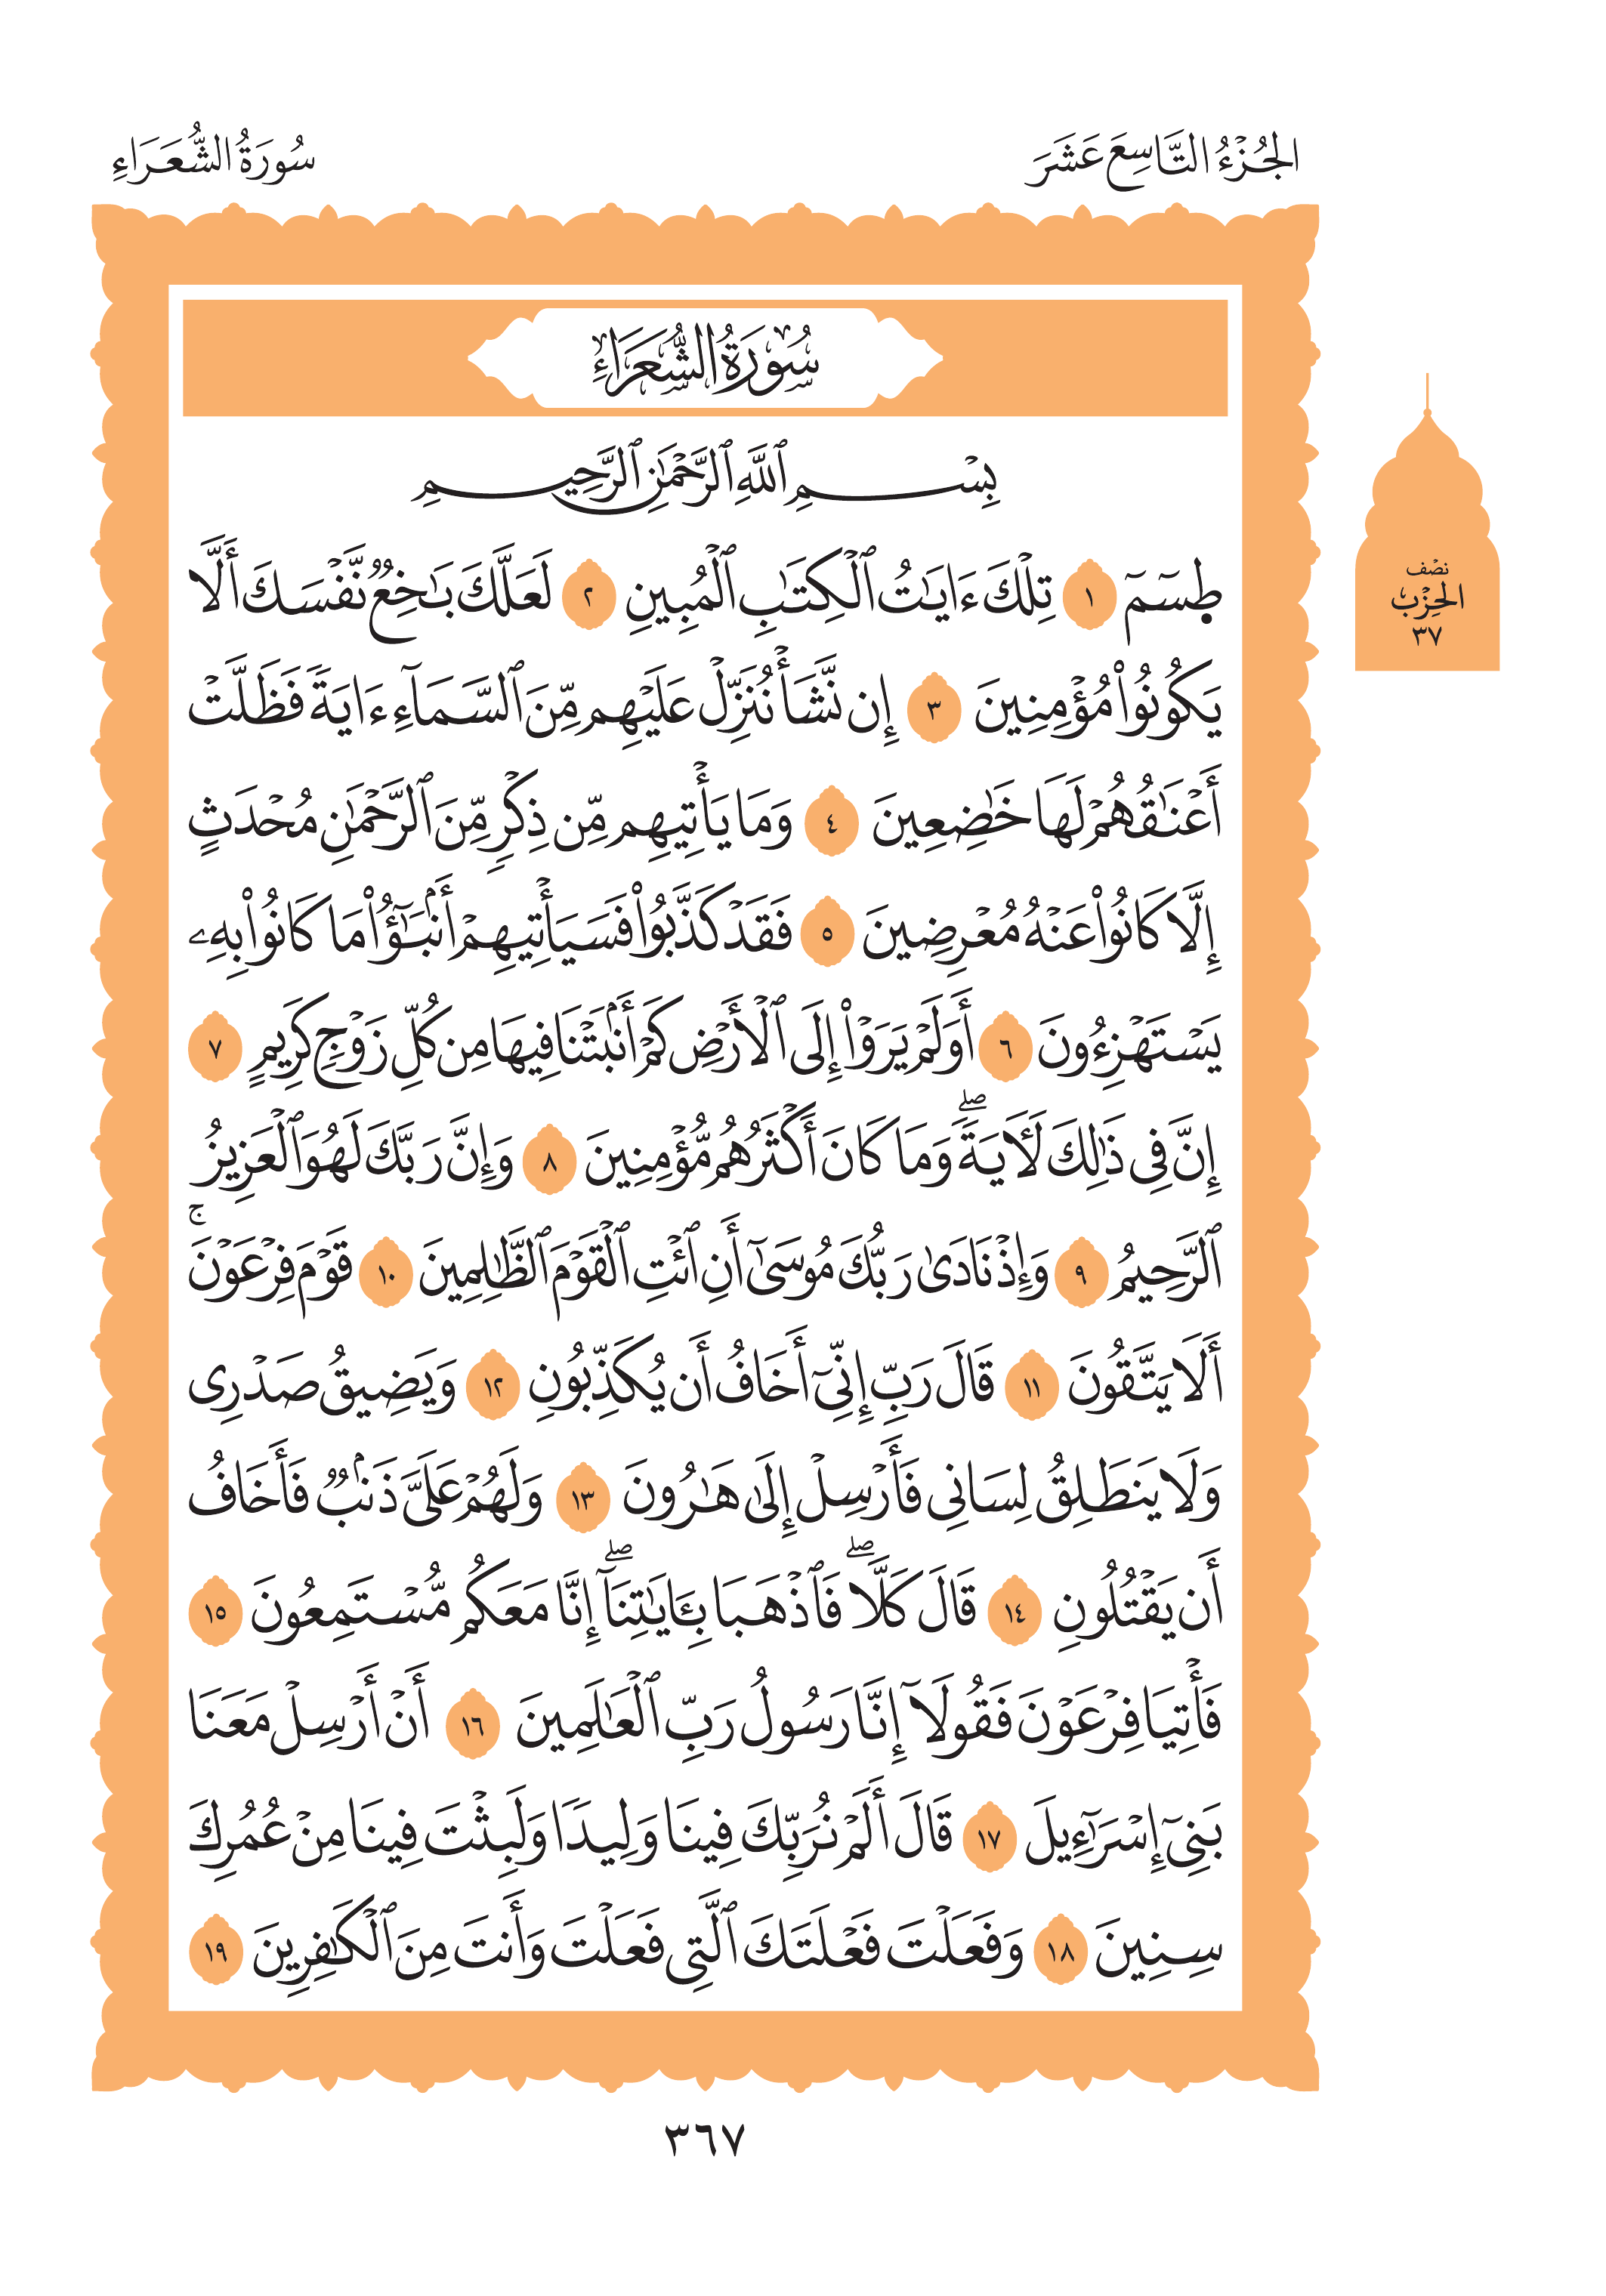 الجُزْءُ التَّاسِعَ عَشَرَ
سُورَةُ الشُّعَرَاءِ
سُورَةُ الشُّعَرَاءِ
بِسْمِ ٱللَّهِ ٱلرَّحْمَٰنِ ٱلرَّحِيمِ
طسٓمٓ ١ تِلْكَ ءَايَٰتُ ٱلْكِتَٰبِ ٱلْمُبِينِ ٢ لَعَلَّكَ بَٰخِعٌ نَّفْسَكَ أَلَّا
يَكُونُوا۟ مُؤْمِنِينَ ٣ إِن نَّشَأْ نُنَزِّلْ عَلَيْهِم مِّنَ ٱلسَّمَآءِ ءَايَةً فَظَلَّتْ
أَعْنَٰقُهُمْ لَهَا خَٰضِعِينَ ٤ وَمَا يَأْتِيهِم مِّن ذِكْرٍ مِّنَ ٱلرَّحْمَٰنِ مُحْدَثٍ
إِلَّا كَانُوا۟ عَنْهُ مُعْرِضِينَ ٥ فَقَدْ كَذَّبُوا۟ فَسَيَأْتِيهِمْ أَنۢبَٰٓؤُا۟ مَا كَانُوا۟ بِهِۦ
يَسْتَهْزِءُونَ ٦ أَوَلَمْ يَرَوْا۟ إِلَى ٱلْأَرْضِ كَمْ أَنۢبَتْنَا فِيهَا مِن كُلِّ زَوْجٍ كَرِيمٍ ٧
إِنَّ فِى ذَٰلِكَ لَأٓيَةً ۖ وَمَا كَانَ أَكْثَرُهُم مُّؤْمِنِينَ ٨ وَإِنَّ رَبَّكَ لَهُوَ ٱلْعَزِيزُ
ٱلرَّحِيمُ ٩ وَإِذْ نَادَىٰ رَبُّكَ مُوسَىٰٓ أَنِ ٱئْتِ ٱلْقَوْمَ ٱلظَّٰلِمِينَ ١٠ قَوْمَ فِرْعَوْنَ ۚ
أَلَا يَتَّقُونَ ١١ قَالَ رَبِّ إِنِّىٓ أَخَافُ أَن يُكَذِّبُونِ ١٢ وَيَضِيقُ صَدْرِى
وَلَا يَنطَلِقُ لِسَانِى فَأَرْسِلْ إِلَىٰ هَٰرُونَ ١٣ وَلَهُمْ عَلَىَّ ذَنۢبٌ فَأَخَافُ
أَن يَقْتُلُونِ ١٤ قَالَ كَلَّا ۖ فَٱذْهَبَا بِـَٔايَٰتِنَآ ۖ إِنَّا مَعَكُم مُّسْتَمِعُونَ ١٥
فَأْتِيَا فِرْعَوْنَ فَقُولَآ إِنَّا رَسُولُ رَبِّ ٱلْعَٰلَمِينَ ١٦ أَنْ أَرْسِلْ مَعَنَا
بَنِىٓ إِسْرَٰٓءِيلَ ١٧ قَالَ أَلَمْ نُرَبِّكَ فِينَا وَلِيدًا وَلَبِثْتَ فِينَا مِنْ عُمُرِكَ
سِنِينَ ١٨ وَفَعَلْتَ فَعْلَتَكَ ٱلَّتِى فَعَلْتَ وَأَنتَ مِنَ ٱلْكَٰفِرِينَ ١٩
نصْف
الحِزْب
٣٧
٣٦٧